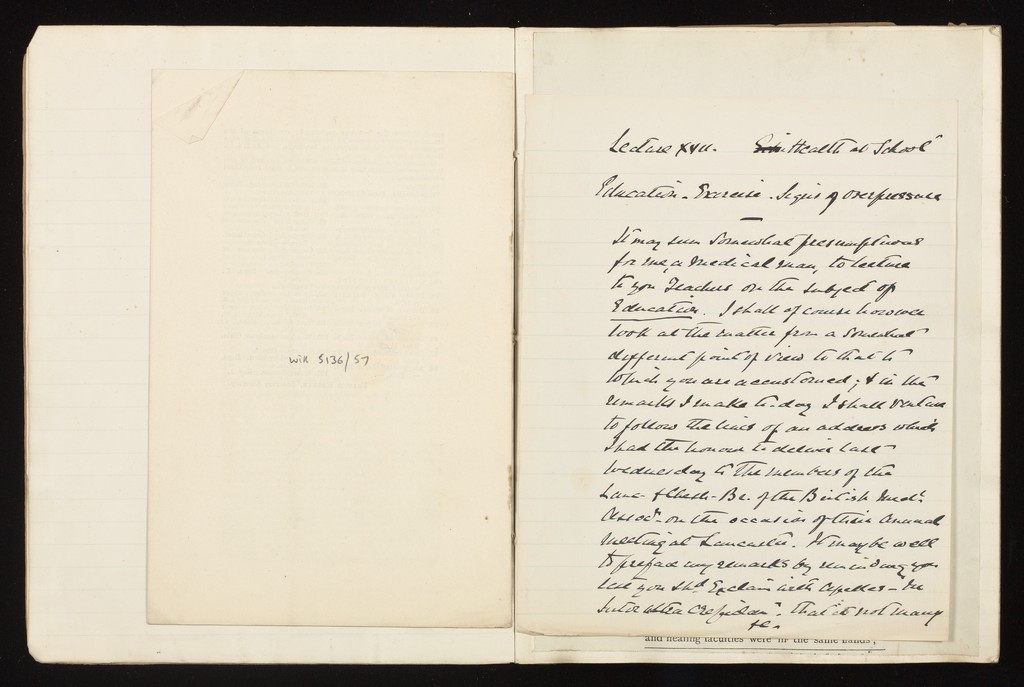 WIK 5136/57
Lecture XVII. Health at School
Education - Exercise. Signs of overpressure
It may seem somewhat presumptuous
for me, a medical man, to lecture
to you Teachers on the subject of
Education. I shall of course however
look at the matter from a somewhat
different point of view to that to
which you are accustomed; & in the
remarks I make to-day I shall venture
to follow the lines of an address which
I had the honour to deliver last
Wednesday to the members of the
Lanc. & Chesh. Br. of the British Medl.
Assocn. on the occasion of their annual
meeting at Lancaster. It may be well
to preface my remarks by reminding you
lest you shd. exclaim with Apelles - "Ne
sutor ultra crepidam", that it is not many
&c.
and healing faculties were in the same hands,